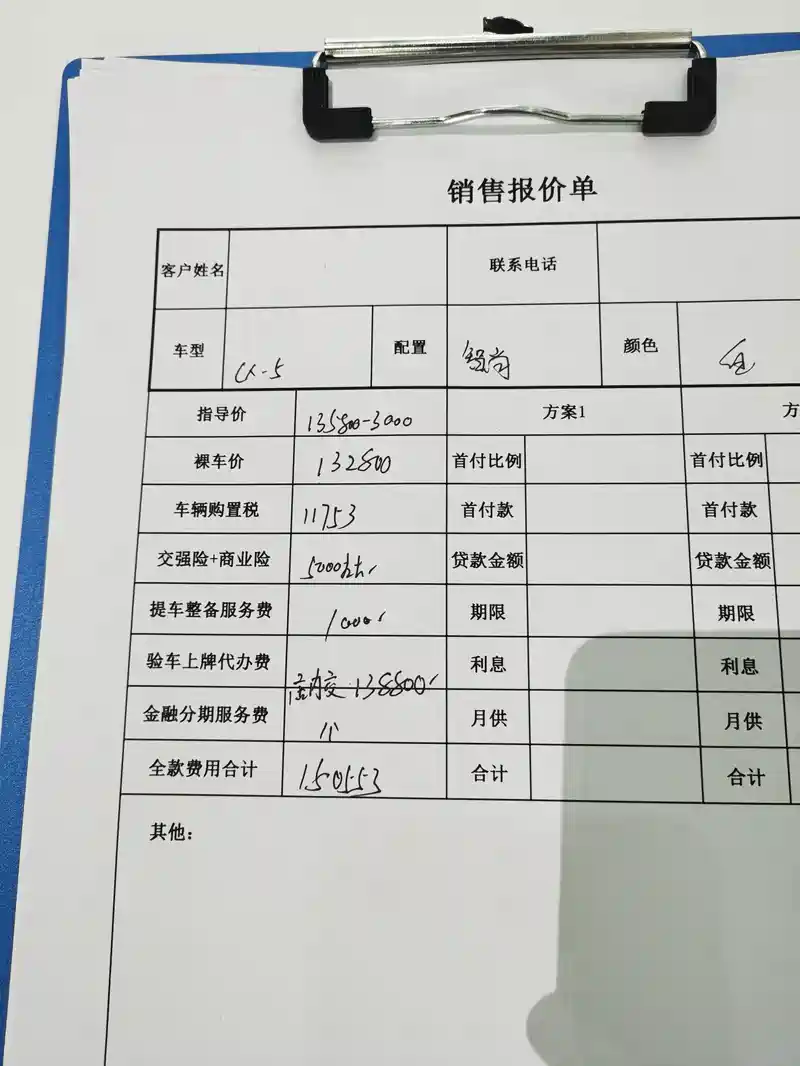 销售报价单
客户姓名 联系电话
车型 CX-5 配置 智尚 颜色
指导价 135800-3000 方案1 方
裸车价 132800 首付比例 首付比例
车辆购置税 11753 首付款 首付款
交强险+商业险 5000左右 贷款金额 贷款金额
提车整备服务费 1000 期限 期限
验车上牌代办费 138800 利息 利息
金融分期服务费 月供 月供
全款费用合计 150553 合计 合计
其他: